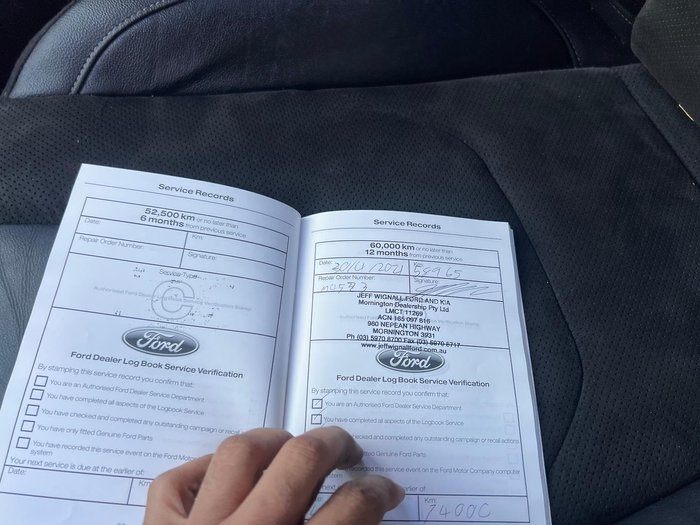 Service Records
52,500 km or no later than
6 months from previous service
Date:
Km:
Repair Order Number:
Signature:
Service Type
C
Authorised Ford Dealer Service Verification Stamp
Ford
Ford Dealer Log Book Service Verification
By stamping this service record you confirm that:
You are an Authorised Ford Dealer Service Department
You have completed all aspects of the Logbook Service
You have checked and completed any outstanding campaign or recall
You have only fitted Genuine Ford Parts
You have recorded this service event on the Ford Motor
system
Your next service is due at the earlier of:
Date:
Km:
Service Records
60,000 km or no later than
12 months from previous service
Date: 20/4/2021
58965
Repair Order Number:
Signature:
JEFF WIGNALL FORD AND KIA
Mornington Dealership Pty Ltd
LMCT 11269
ACN 165 097 816
960 NEPEAN HIGHWAY
MORNINGTON 3931
Ph (03) 5970 8700 Fax (03) 5970 8717
www.jeffwignallford.com.au
Ford
Ford Dealer Log Book Service Verification
By stamping this service record you confirm that:
You are an Authorised Ford Dealer Service Department
You have completed all aspects of the Logbook Service
checked and completed any outstanding campaign or recall actions
fitted Genuine Ford Parts
recorded this service event on the Ford Motor Company computer
next
Km:
74000